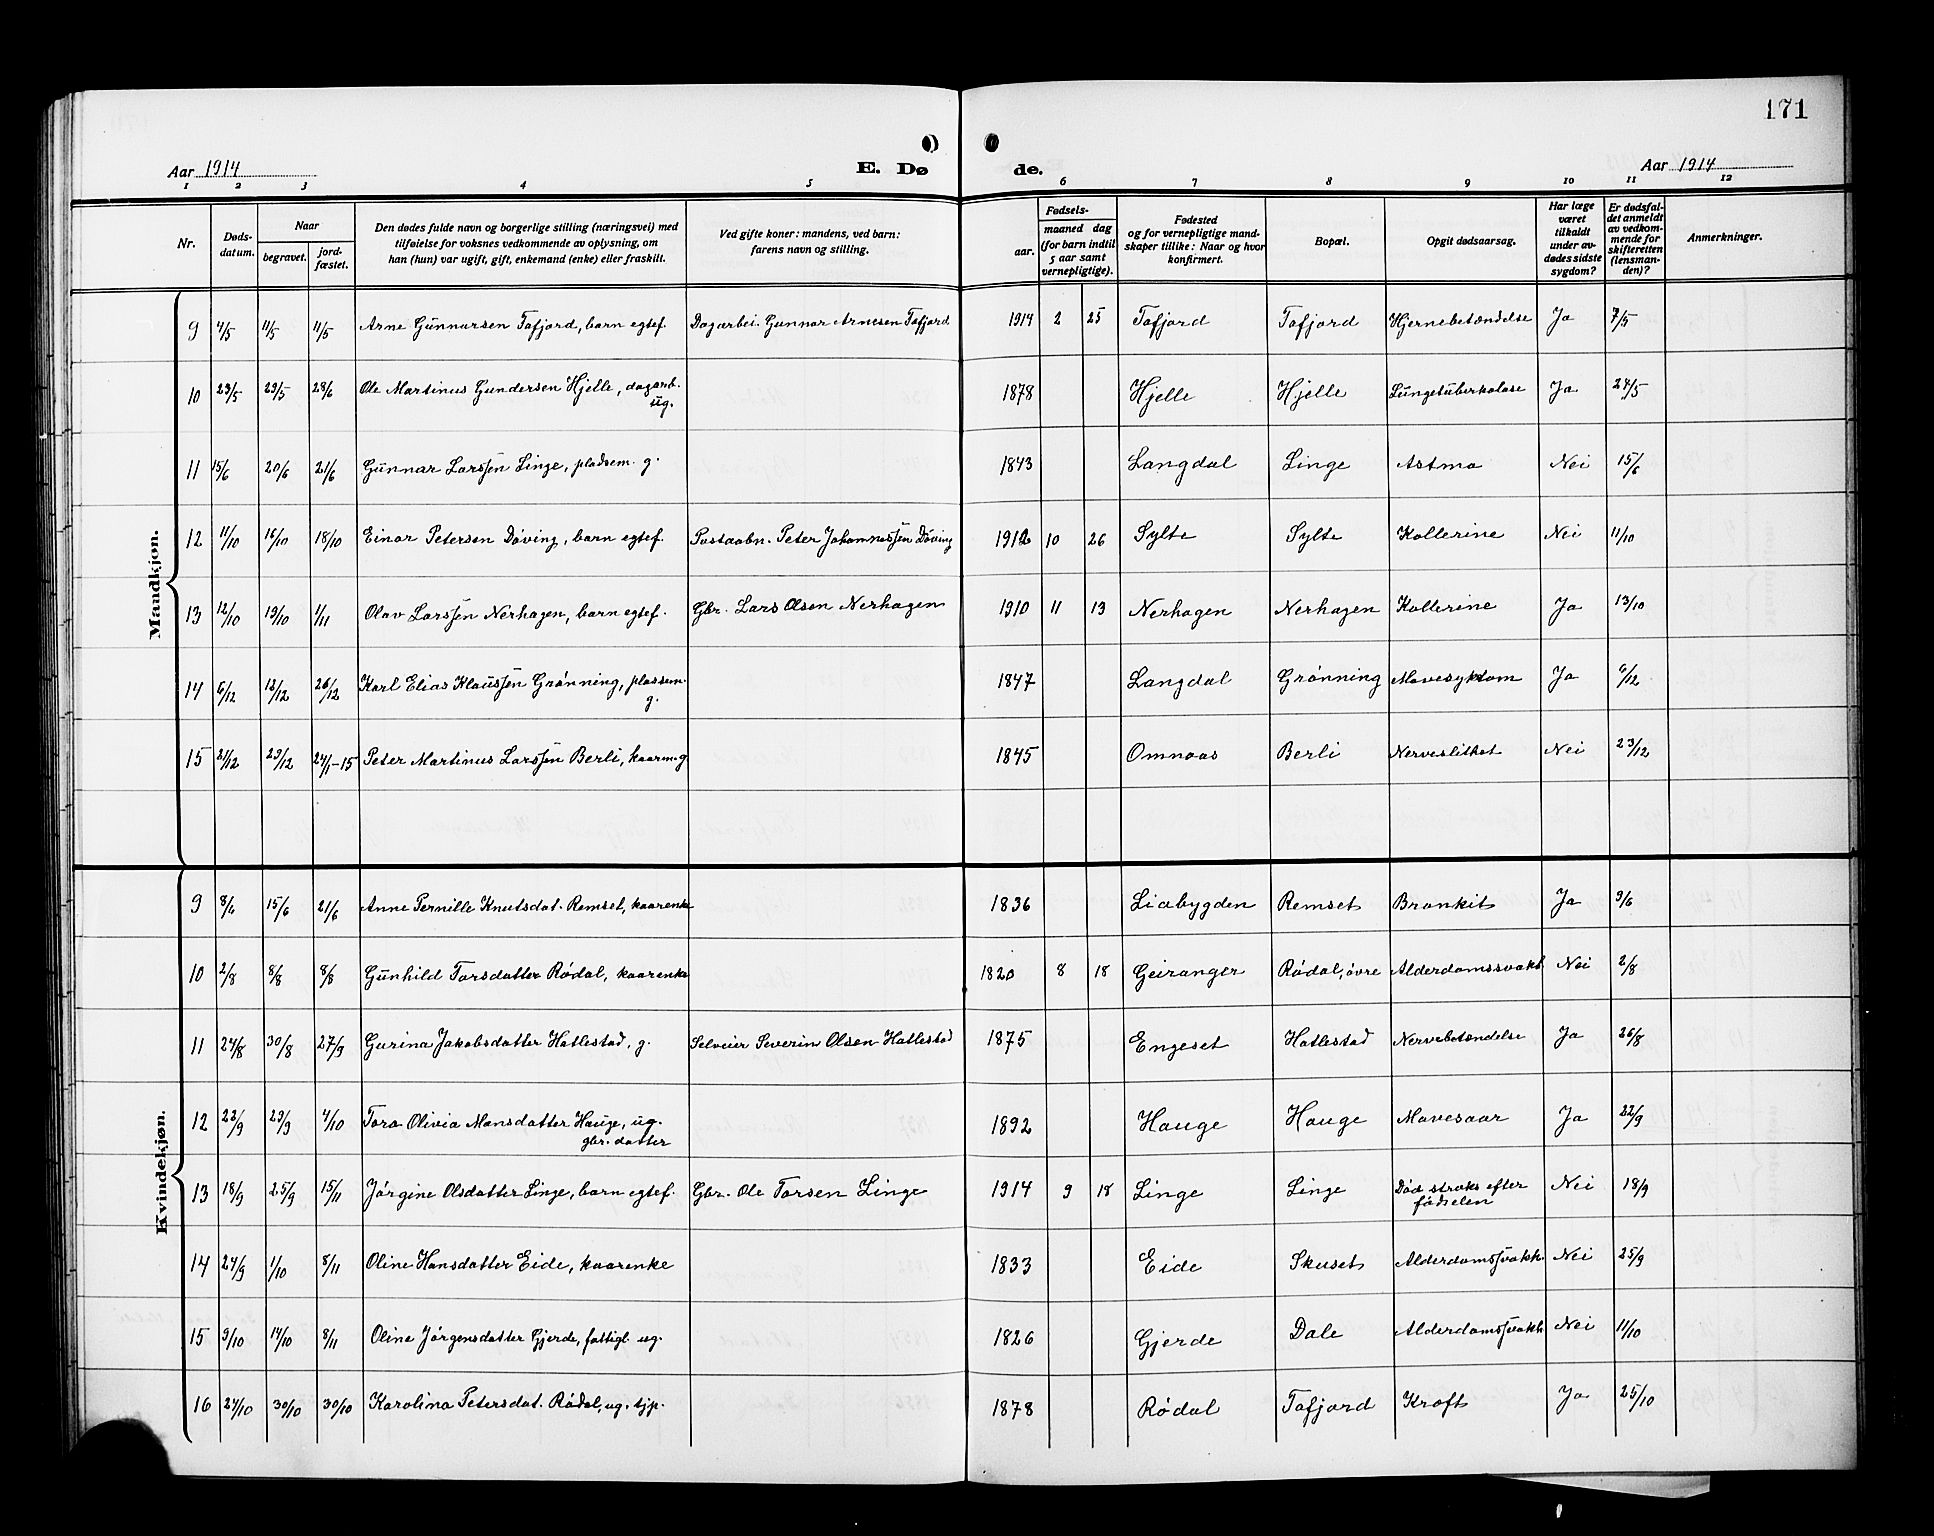 171
Aar 1914
E. Dø
de.
Aar 1914
1 2 3 4 5 6 7 8 9 10 11 12
Nr.
Døds-
datum.
Naar
begravet.
jord-
fæstet.
Den dødes fulde navn og borgerlige stilling (næringsvei) med
tilføielse for voksnes vedkommende av oplysning, om
han (hun) var ugift, gift, enkemand (enke) eller fraskilt.
Ved gifte koner: mandens, ved barn:
farens navn og stilling.
Fødsels-
aar.
maaned dag
(for barn indtil
5 aar samt
vernepligtige).
Fødested
og for vernepligtige mand-
skaper tillike: Naar og hvor
konfirmert.
Bopæl.
Opgit dødsaarsag.
Har læge
været
tilkaldt
under av-
dødes sidste
sygdom?
Er dødsfal-
det anmeldt
av vedkom-
mende for
skifteretten
(lensman-
den)?
Anmerkninger.
Mandkjøn.
9 4/5 11/5 11/5 Arne Gunnarsen Tafjord, barn egtef. Dagarbei. Gunnar Arnesen Tafjord 1914 2 25 Tafjord Tafjord Hjernebetændelse Ja 7/5
10 23/5 29/5 28/6 Ole Martinus Gundersen Hjelle, dagarb. 1878 Hjelle Hjelle Lungetuberkulose Ja 24/5
ug.
11 15/6 20/6 21/6 Gunnar Larssen Linge, pladsem. g. 1843 Langdal Linge Astma Nei 15/6
12 11/10 16/10 18/10 Einar Petersen Døving, barn egtef. Postaabn. Peter Johannessen Døving 1912 10 26 Sylte Sylte Kollerine Nei 11/10
13 12/10 19/10 1/11 Olav Larssen Nerhagen, barn egtef. Gbr. Lars Olsen Nerhagen 1910 11 13 Nerhagen Nerhagen Kollerine Ja 13/10
14 6/12 12/12 26/12 Karl Elias Klaussen Grønning, plassem. 1847 Langdal Grønning Mavesykdom Ja 9/12
g.
15 21/12 29/12 24/1-15 Peter Martinus Larssen Berli, kaarm. g 1845 Omnaas Berli Nerveslitket Nei 23/12
Kvindekjøn.
9 8/6 15/6 21/6 Anne Pernille Knutsdat. Remset, kaarenke 1836 Liabygden Remset Bronkit Ja 9/6
10 2/8 8/8 8/8 Gunhild Torsdatter Rødal, kaarenke 1820 8 18 Geiranger Rødal, øvre Alderdomssvakh Nei 2/8
11 24/8 30/8 27/9 Gurina Jakobsdatter Hatlestad, g. Selveier Severin Olsen Hatlestad 1875 Engeset Hatlestad Nervebetændelse Ja 26/8
12 22/9 29/9 4/10 Tora Olivia Monsdatter Hauge, ug. 1892 Hauge Hauge Mavesaar Ja 22/9
gbr. datter
13 18/9 25/9 15/11 Jørgine Olsdatter Linge, barn egtef. Gbr. Ole Torsen Linge 1914 9 18 Linge Linge Død straks efter Nei 18/9
fødselen
14 24/9 1/10 8/11 Oline Hansdatter Eide, kaarenke 1833 Eide Skuset Alderdomssvakh. Nei 25/9
15 9/10 14/10 8/11 Oline Jørgensdatter Gjerde, fattigl. ug. 1826 Gjerde Dale Alderdomssvakh Nei 11/10
16 24/10 30/10 30/10 Karolina Petersdat. Rødal, ug. tjp. 1878 Rødal Tafjord Kræft Ja 25/10